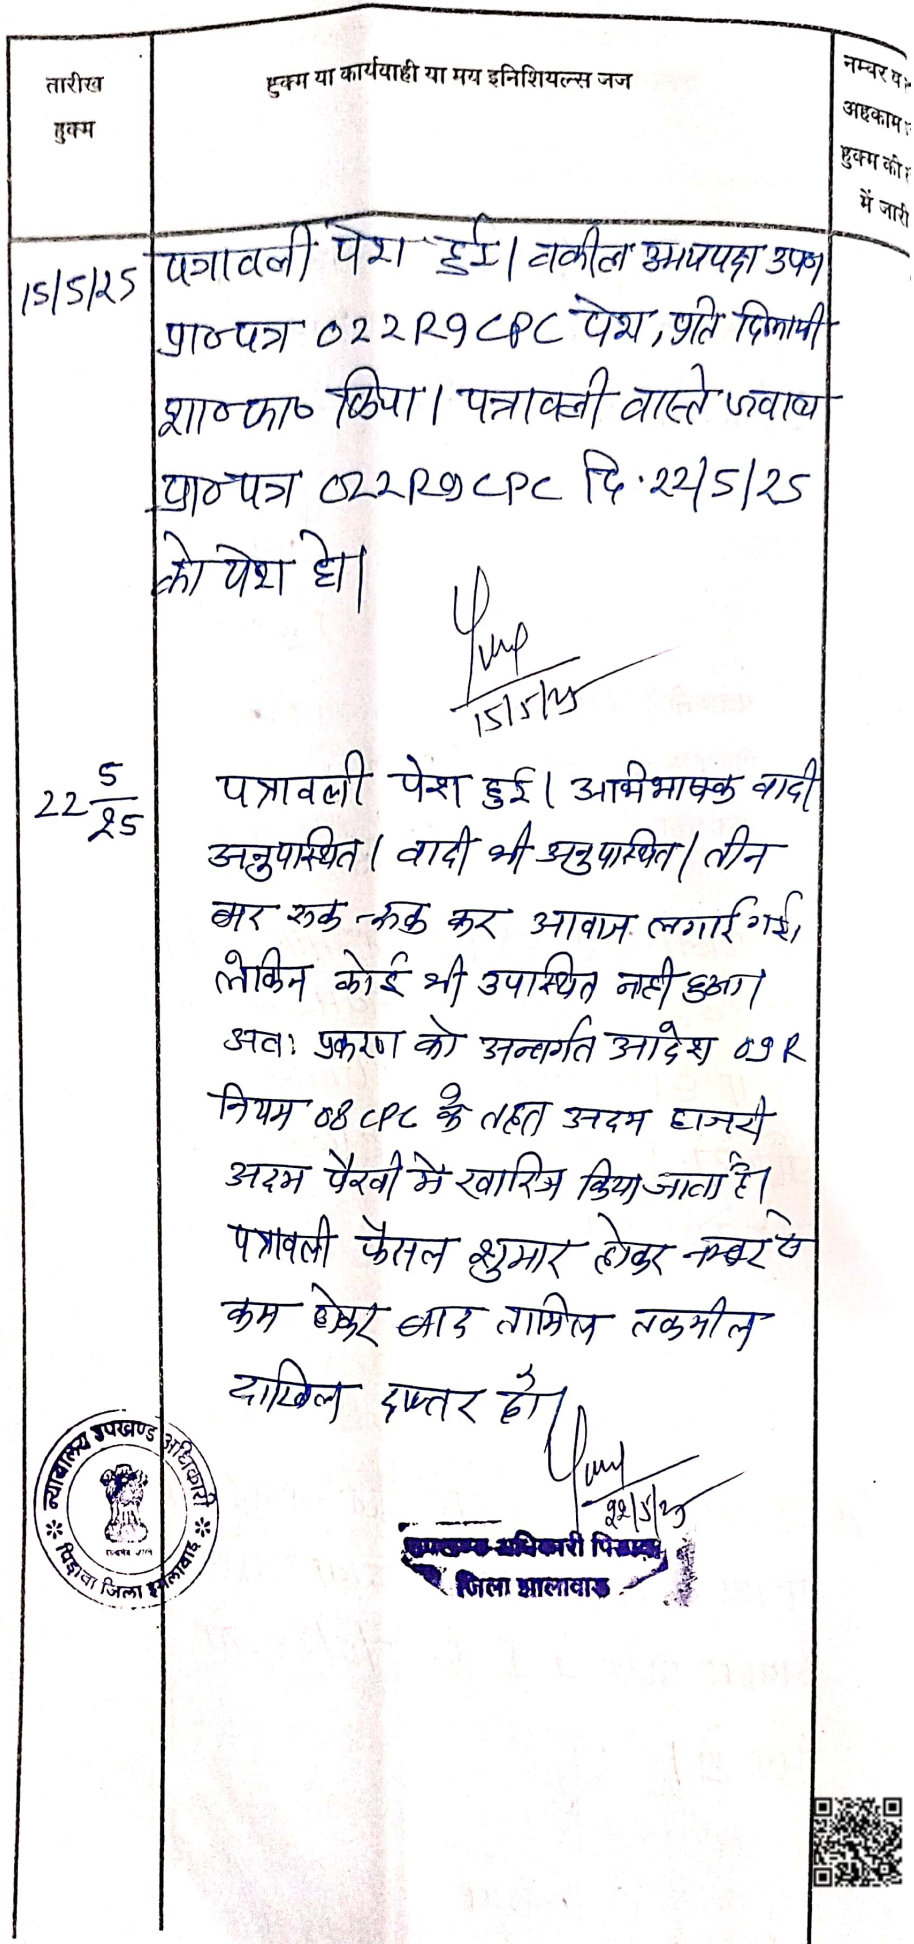 तारीख
हुक्म
हुक्म या कार्यवाही या मय इनिशियल्स जज
नम्बर व
अहकाम
हुक्म की
में जारी
15/5/25
पत्रावली पेश हुई। वकील उभयपक्ष उप०।
प्रा०पत्र O22R9 CPC पेश, प्रति दिलायी
शा०फा० किया। पत्रावली वास्ते जवाब
प्रा०पत्र O22R9 CPC दि. 22/5/25
को पेश हो।
15/5/25
22 5/25
पत्रावली पेश हुई। अभिभाषक वादी
अनुपास्थित। वादी भी अनुपास्थित। तीन
बार रुक-रुक कर आवाज लगाई गई।
लेकिन कोई भी उपास्थित नही हुआ।
अतः प्रकरण को अन्तर्गत आदेश 09 R
नियम 08 CPC के तहत अदम हाजरी
अदम पैरवी मे खारिज किया जाता है।
पत्रावली फैसल शुमार होकर नम्बर से
कम होकर बाद तामिल तकमील
दाखिल दफ्तर हो।
22/5/25
उपखण्ड अधिकारी पिडावा
जिला झालावाड
न्यायालय उपखण्ड अधिकारी
पिड़ावा जिला झालावाड़